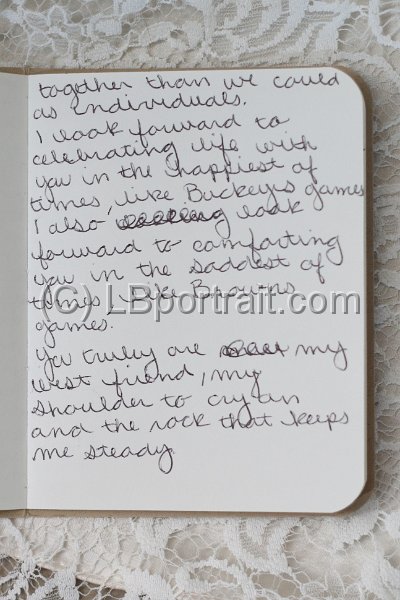 together than we could
as individuals.
I look forward to
celebrating life with
you in the happiest of
times, like Buckeys games
I also look
forward to comforting
you in the saddest of
times, like Browns
(C) LBportrait.com
games.
You truley are my
best friend, my
shoulder to cry on
and the rock that keeps
me steady.